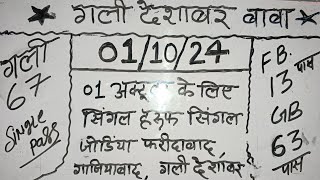 ★ गली देशावर बाबा ★
गली
67
Single
pass
01/10/24
01 अक्टूबर के लिए
सिंगल हरूफ सिंगल
जोडिया फरीदाबाद
गाजियाबाद, गली देशावर
F.B.
13 पास
GB
63
पास